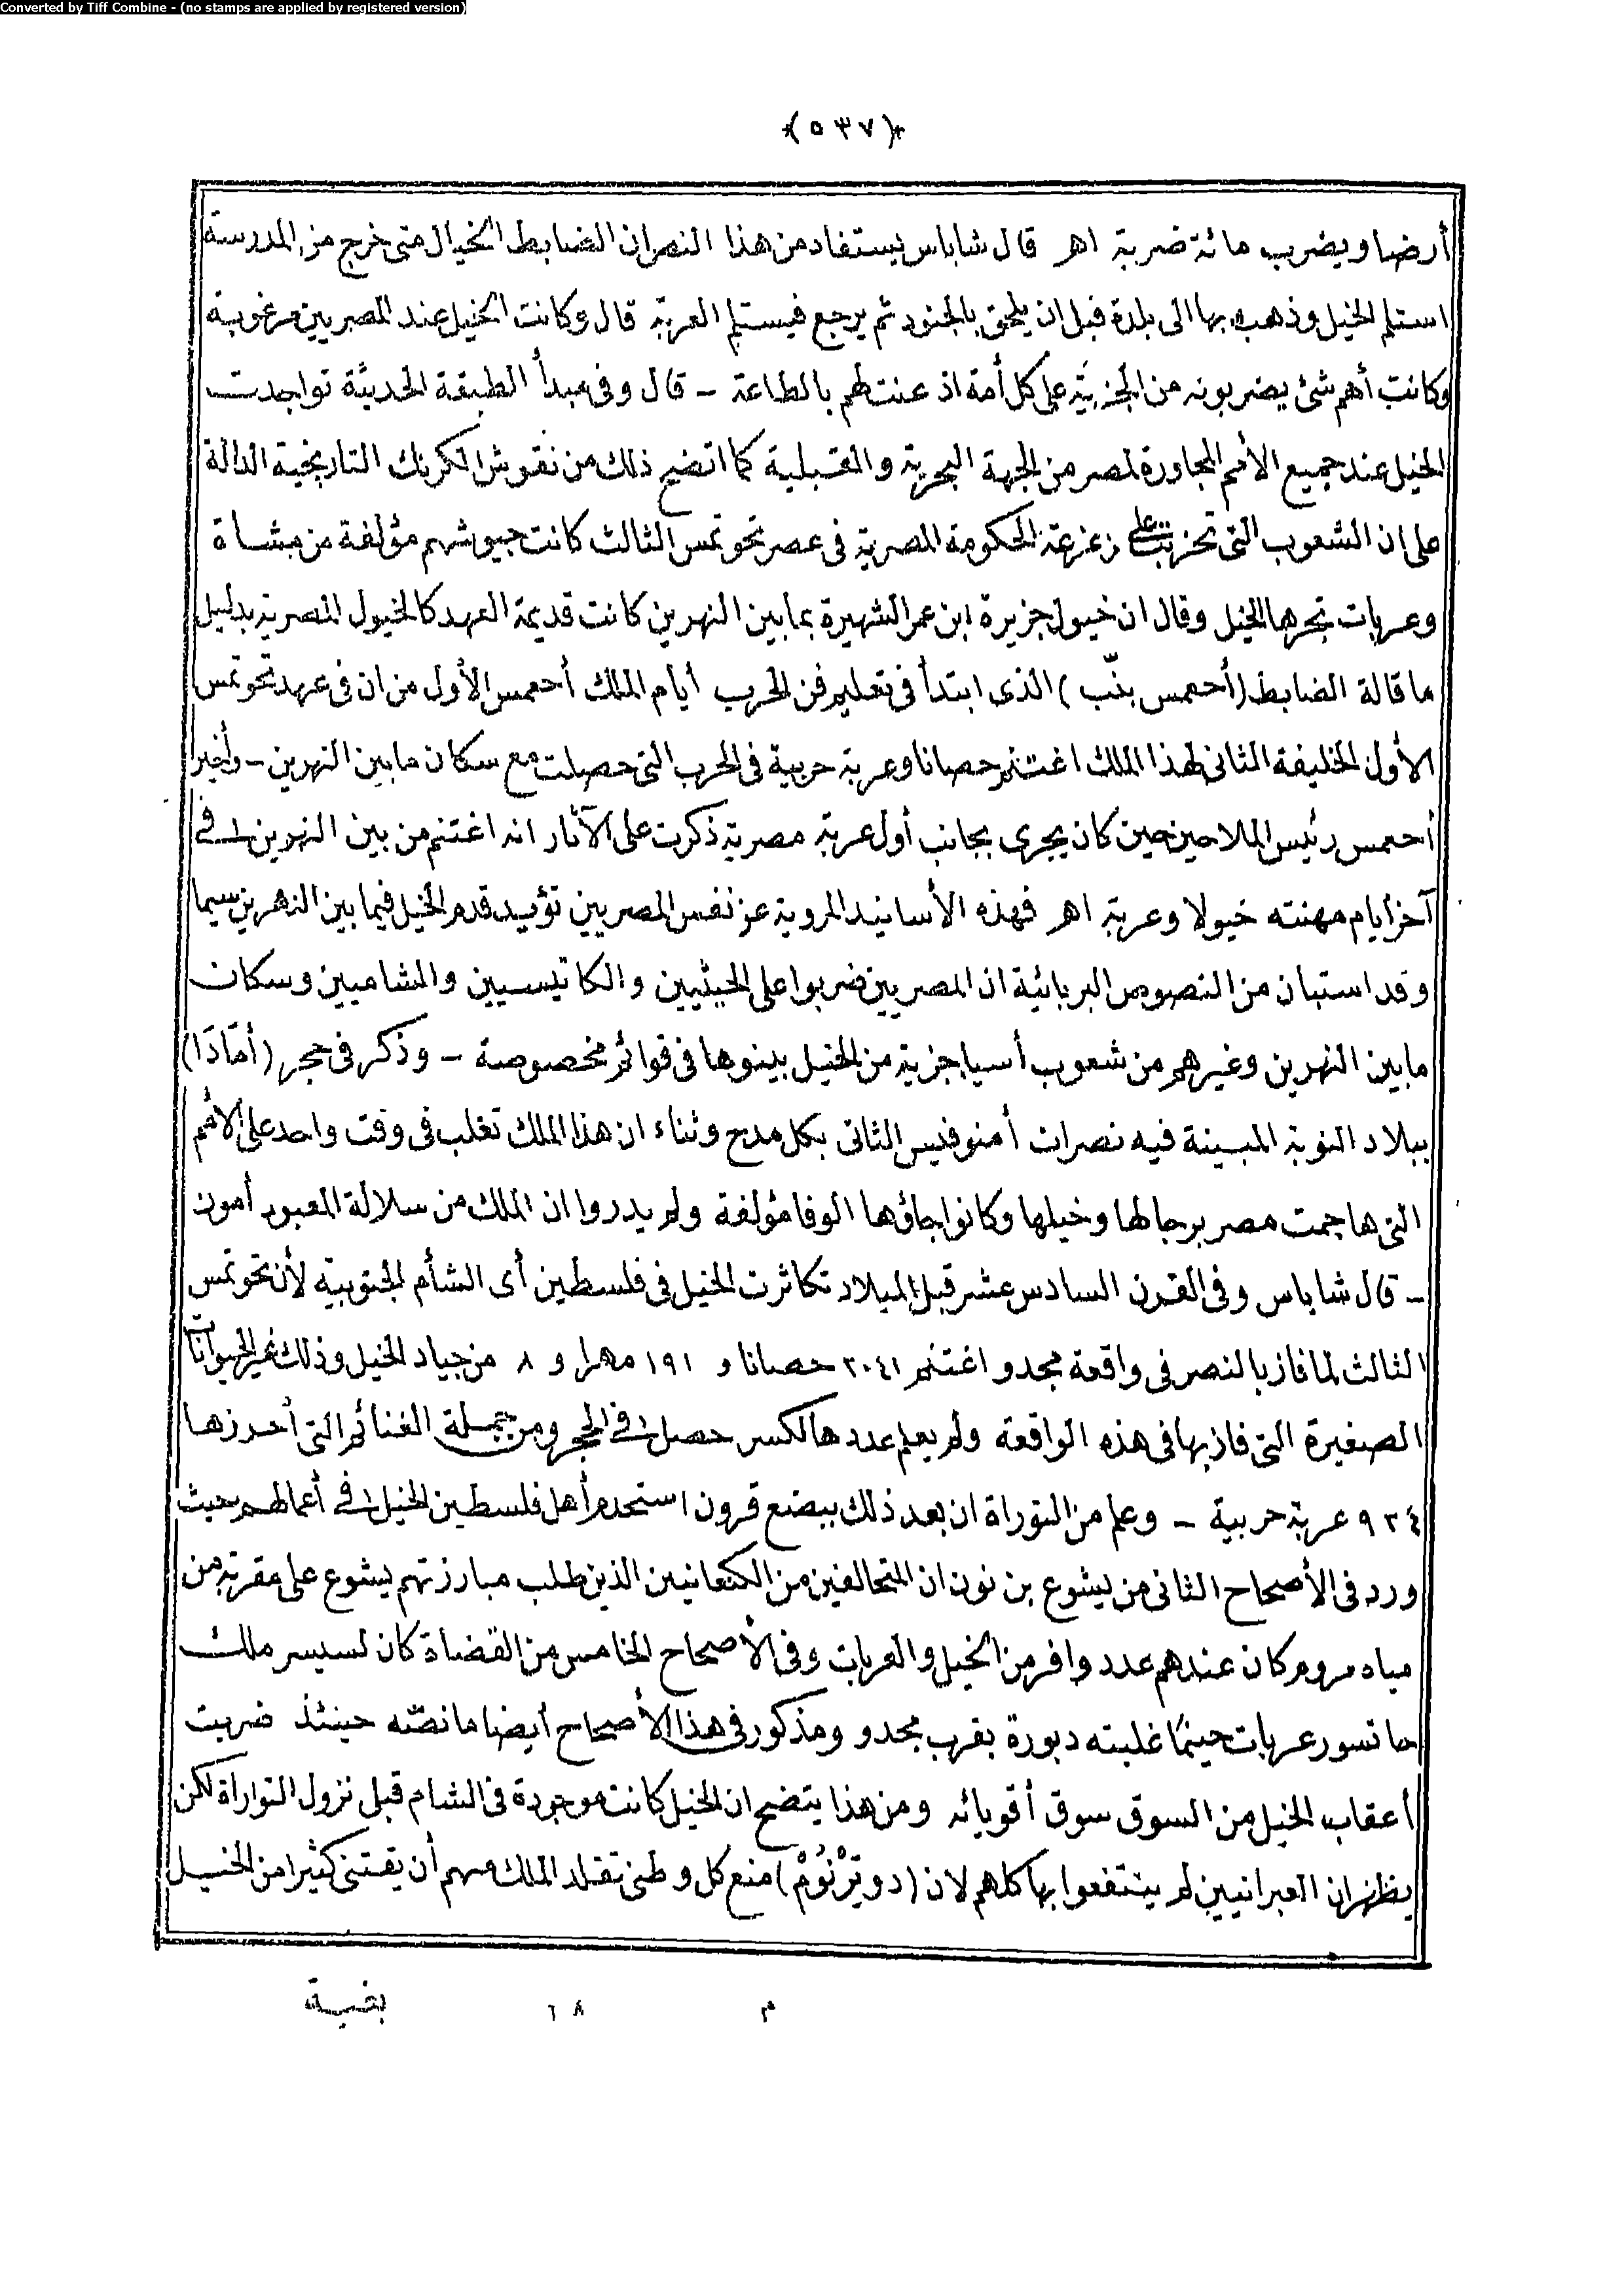 Converted by Tiff Combine - (no stamps are applied by registered version)
(٥٣٧)
أرضا ويضرب مائة ضربة اهـ قال شاباس يستفاد من هذا النص ان الضابط الخيال متى خرج من المدرسة
استلم الخيل وذهب بها الى بلدة قبل ان يلحق بالجنود ثم يرجع فيستلم العربة قال وكانت الخيل عند المصريين مرغوبة
وكانت أهم شئ يضربونه من الجزية على كل أمة اذ عنت لهم بالطاعة – قال وفى مبدأ الطبقة الحديثة تواجدت
الخيل عند جميع الأمم المجاورة لمصر من الجهة البحرية والقبلية كما اتضح ذلك من نقوش الكرنك التاريخية الدالة
على ان الشعوب التى تحزبت على زعزعة الحكومة المصرية فى عصر تحوتمس الثالث كانت جيوشهم مؤلفة من مشاة
وعربات تجرها الخيل وقال ان خيول جزيرة ابن عمر الشهيرة بمابين النهرين كانت قديمة العهد كالخيول المصرية بدليل
ما قالة الضابط (أحمس بنّب) الذى ابتدأ فى تعليم فن الحرب أيام الملك أحمس الأول من ان فى عهد تحوتمس
الأول الخليفة الثانى لهذا الملك اغتنم حصانا وعربة حربية فى الحرب التى حصلت مع سكان مابين النهرين – وأخيرا
أحمس رئيس الملاحين حين كان يجرى بجانب أول عربة مصرية ذكرت على الآثار انه اغتنم من بين النهرين فى
آخر أيام مهنته خيولا وعربة اهـ فهذه الأسانيد المروية عن نفس المصريين تؤيد قدم الخيل فيما بين النهرين سيما
وقد استبان من النصوص البربائية ان المصريين ضربوا على الحيثيين والكاتيسيين والشاميين وسكان
مابين النهرين وغيرهم من شعوب أسيا جزية من الخيل بينوها فى قوائم مخصوصة – وذكر فى حجر (أمَادَا)
ببلاد النوبة المبينة فيه نصرات أمنوفيس الثانى بكل مدح وثناء ان هذا الملك تغلب فى وقت واحد على الأمم
التى هاجمت مصر برجالها وخيلها وكانوا جاؤها الوفا مؤلفة ولم يدروا ان الملك من سلالة المعبود أمون
– قال شاباس وفى القرن السادس عشر قبل الميلاد تكاثرت الخيل فى فلسطين أى الشأم الجنوبية لأن تحوتمس
الثالث لما فاز بالنصر فى واقعة مجدو اغتنم ٢٠٤١ حصانا و ١٩١ مهرا و ٨ من جياد الخيل وذلك غير الحيوانات
الصغيرة التى فاز بها فى هذه الواقعة ولم يعلم عددها لكسر حصل فى الحجر ومن جملة الغنائم التى أحرزها
٩٢٤ عربة حربية – وعلم من التوراة ان بعد ذلك ببضع قرون استخدم أهل فلسطين الخيل فى أعمالهم بحيث
ورد فى الأصحاح الثانى من يشوع بن نون ان المتحالفين من الكنعانيين الذين طلب مبارزتهم يشوع على مقربة من
مياه مروم كان عندهم عدد وافر من الخيل والعربات وفى الأصحاح الخامس من القضاة كان لسيسر ملك
حاتسور عربات حينما غلبته دبورة بقرب مجدو ومذكور فى هذا الأصحاح أيضا ما نصّه حينئذ ضربت
أعقاب الخيل من السوق سوق أقويائه ومن هذا يتضح ان الخيل كانت موجودة فى الشام قبل نزول التوراة لكن
يظهر ان العبرانيين لم ينتفعوا بها كلهم لان (دويترْنُومْ) منع كل وطنى تقلد الملك منهم أن يقتنى كثيرا من الخيل
م ٦٨ بغية